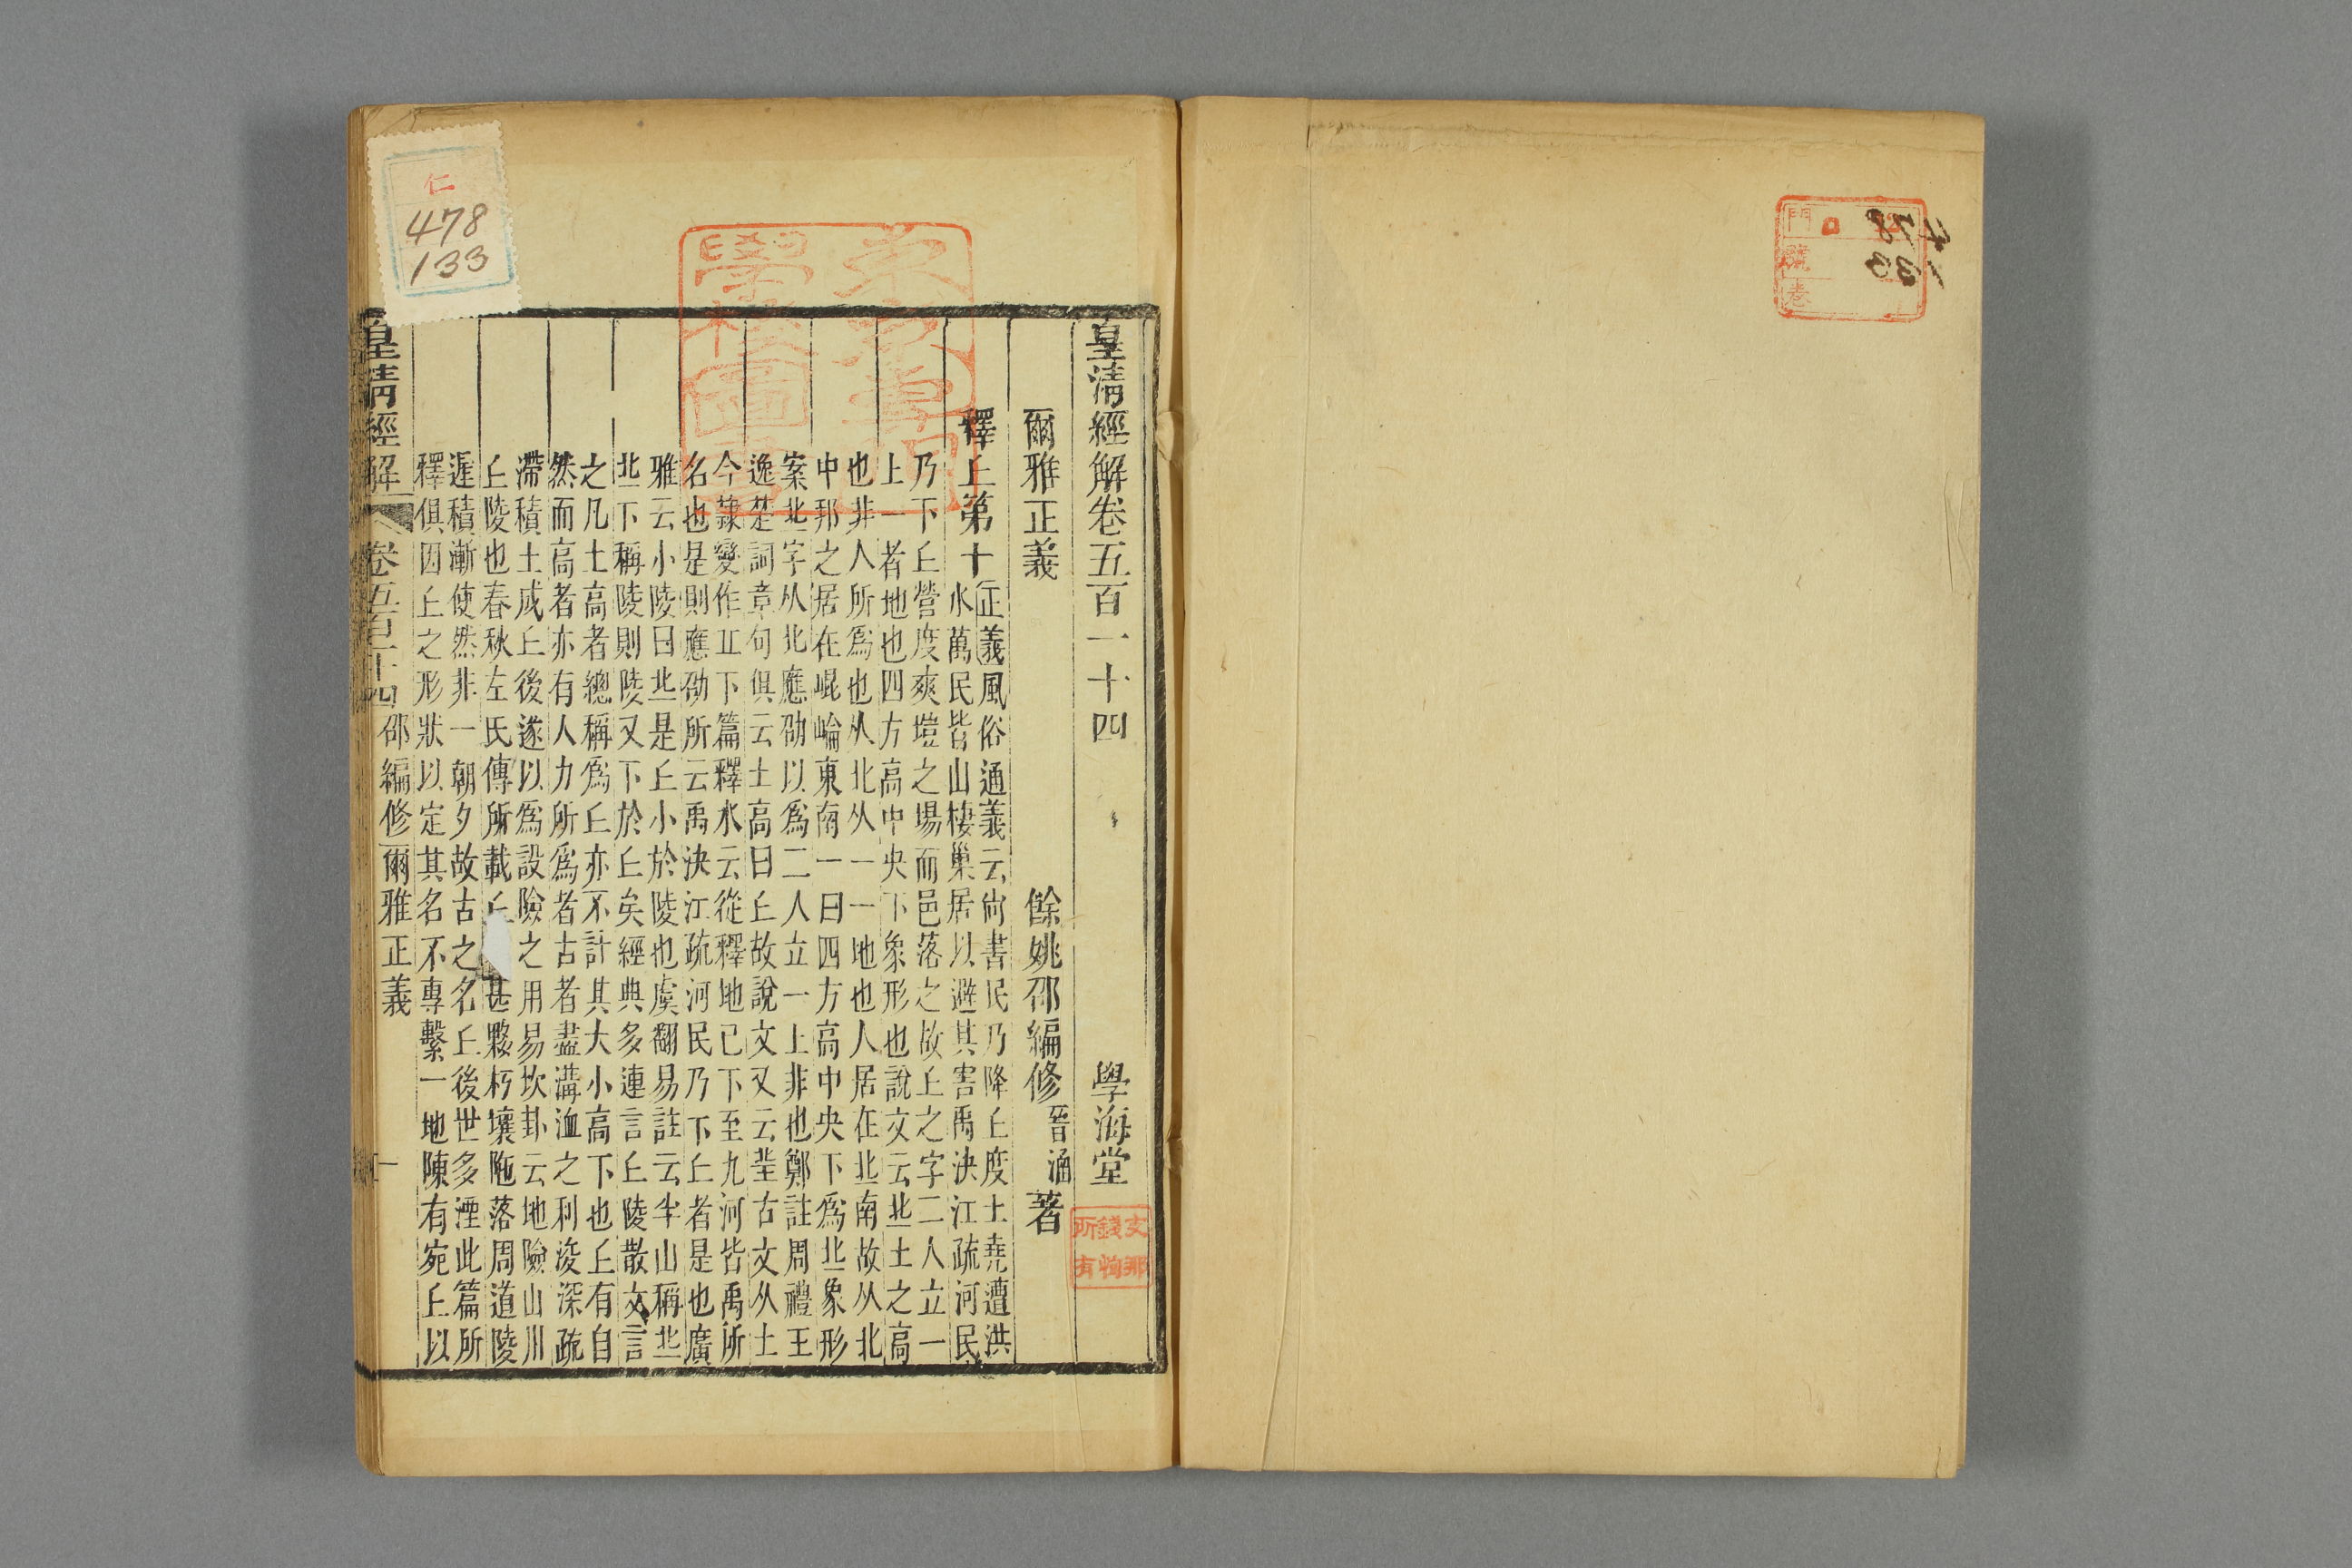 皇清經解卷五百一十四
學海堂
爾雅正義
餘姚邵編修晉涵著
釋丘第十
正義風俗通義云尙書民乃降丘度土堯遭洪
水萬民皆山棲巢居以避其害禹決江疏河民
乃下丘營度爽塏之場而邑落之故丘之字二人立一
上一者地也四方高中央下象形也說文云丠土之高
也非人所爲也从北从一一地也人居在丠南故从北
中邦之居在崐崘東南一曰四方高中央下爲丠象形
案丠字从北應劭以爲二人立一上非也鄭註周禮王
逸楚詞章句俱云土高曰丘故說文又云㘳古文从土
今隸變作丘下篇釋水云從釋地已下至九河皆禹所
名也是則應劭所云禹決江疏河民乃下丘者是也廣
雅云小陵曰丠是丘小於陵也虞翻易註云半山稱丠
丠下稱陵則陵又下於丘矣經典多連言丘陵散文言
之凡土高者總稱爲丘亦不計其大小高下也丘有自
然而高者亦有人力所爲者古者盡溝洫之利浚深疏
滯積土成丘後遂以爲設險之用易坎卦云地險山川
丘陵也春秋左氏傳所載丘甚夥朽壤陁落周道陵
遲積漸使然非一朝夕故古之名丘後世多湮此篇所
釋俱因丘之形狀以定其名不專繫一地陳有宛丘以
皇清經解
卷五百十四
邵編修爾雅正義
一
仁
478
133
門
號
卷